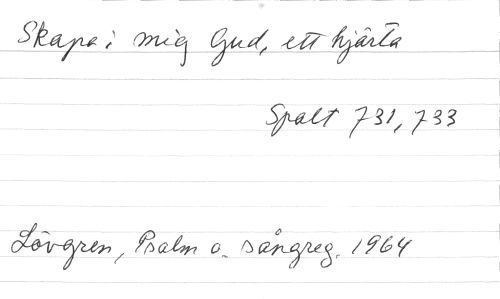 Skapa i mig Gud, ett hjärta
Spalt 731, 733
Lövgren, Psalm o. sångreg. 1964